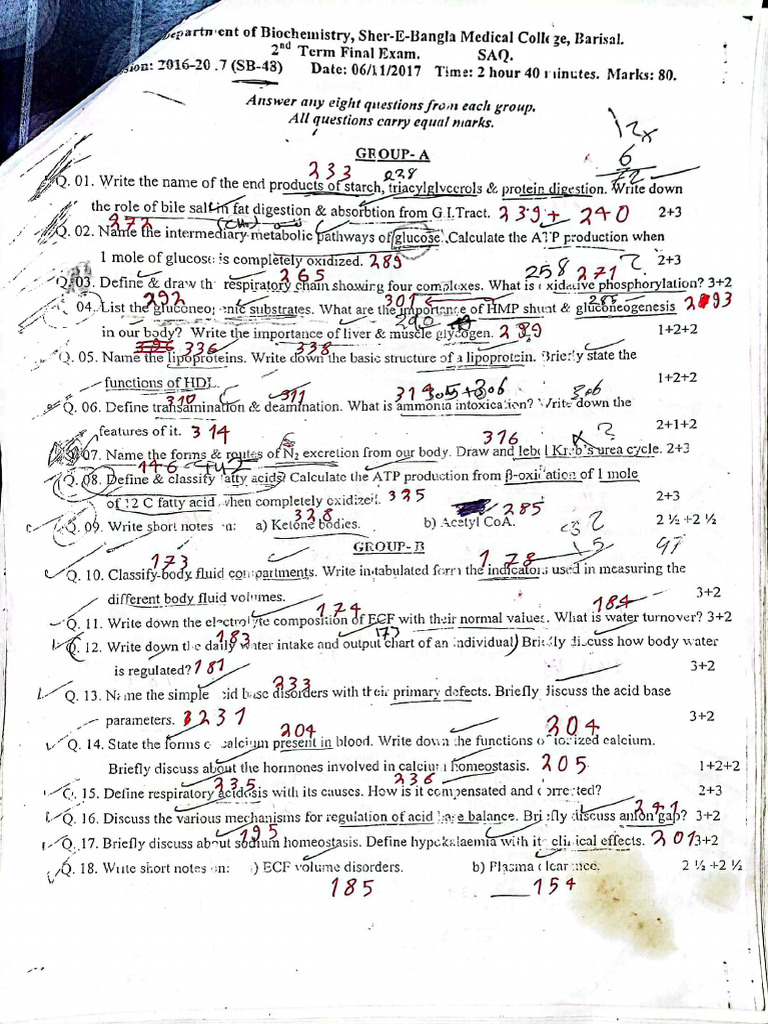 Department of Biochemistry, Sher-E-Bangla Medical College, Barisal.
2nd Term Final Exam. SAQ.
2016-2017 (SB-48) Date: 06/11/2017 Time: 2 hour 40 minutes. Marks: 80.
Answer any eight questions from each group.
All questions carry equal marks.
12x
6
72
GROUP- A
233 228
Q. 01. Write the name of the end products of starch, triacylglycerols & protein digestion. Write down
the role of bile salt in fat digestion & absorption from G.I.Tract. 239+ 240 2+3
272
Q. 02. Name the intermediary metabolic pathways of glucose. Calculate the ATP production when
1 mole of glucose is completely oxidized. 289 2+3
265 258 271 ?
Q. 03. Define & draw the respiratory chain showing four complexes. What is oxidative phosphorylation? 3+2
292 301 288
04. List the gluconeogenic substrates. What are the importance of HMP shunt & gluconeogenesis 293
290
in our body? Write the importance of liver & muscle glycogen. 299 1+2+2
336 338
Q. 05. Name the lipoproteins. Write down the basic structure of a lipoprotein. Briefly state the
functions of HDL. 1+2+2
310 311 314 305+306 306
Q. 06. Define transamination & deamination. What is ammonia intoxication? Write down the
features of it. 314 2+1+2
316 ?
07. Name the forms & routes of N2 excretion from our body. Draw and lebel Kreb's urea cycle. 2+3
146 +42
Q. 08. Define & classify fatty acids? Calculate the ATP production from β-oxidation of 1 mole
of 12 C fatty acid when completely oxidized. 325 2+3
328 285
Q. 09. Write short notes on: a) Ketone bodies. b) Acetyl CoA. 2 ½ +2 ½
GROUP- B
173 178
Q. 10. Classify body fluid compartments. Write in tabulated form the indicators used in measuring the
different body fluid volumes. 3+2
174 184
Q. 11. Write down the electrolyte composition of ECF with their normal values. What is water turnover? 3+2
183 173
Q. 12. Write down the daily water intake and output chart of an individual) Briefly discuss how body water
is regulated? 181 3+2
233
Q. 13. Name the simple acid base disorders with their primary defects. Briefly discuss the acid base
parameters. 231 3+2
204 204
Q. 14. State the forms of calcium present in blood. Write down the functions of ionized calcium.
Briefly discuss about the hormones involved in calcium homeostasis. 205 1+2+2
235 236
Q. 15. Define respiratory acidosis with its causes. How is it compensated and corrected? 2+3
241
Q. 16. Discuss the various mechanisms for regulation of acid base balance. Briefly discuss anion gap? 3+2
195
Q. 17. Briefly discuss about sodium homeostasis. Define hypokalaemia with its clinical effects. 201 3+2
Q. 18. Write short notes on: a) ECF volume disorders. b) Plasma clearance. 2 ½ +2 ½
185 154